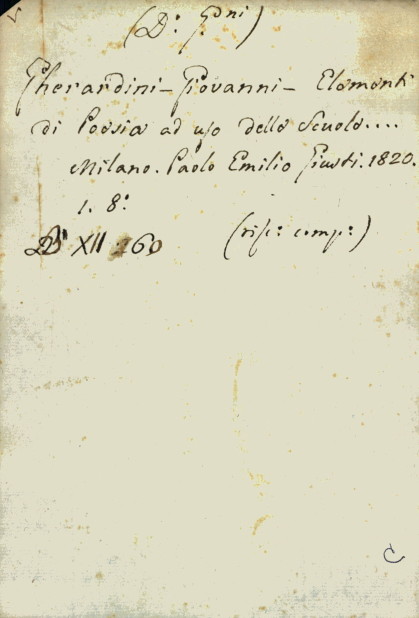 (D: G:ni)
Gherardini - Giovanni - Elementi
di Poesia ad uso delle Scuole....
Milano. Paolo Emilio Giusti. 1820.
1. 8:
XII 160 (ris: comp:)
C